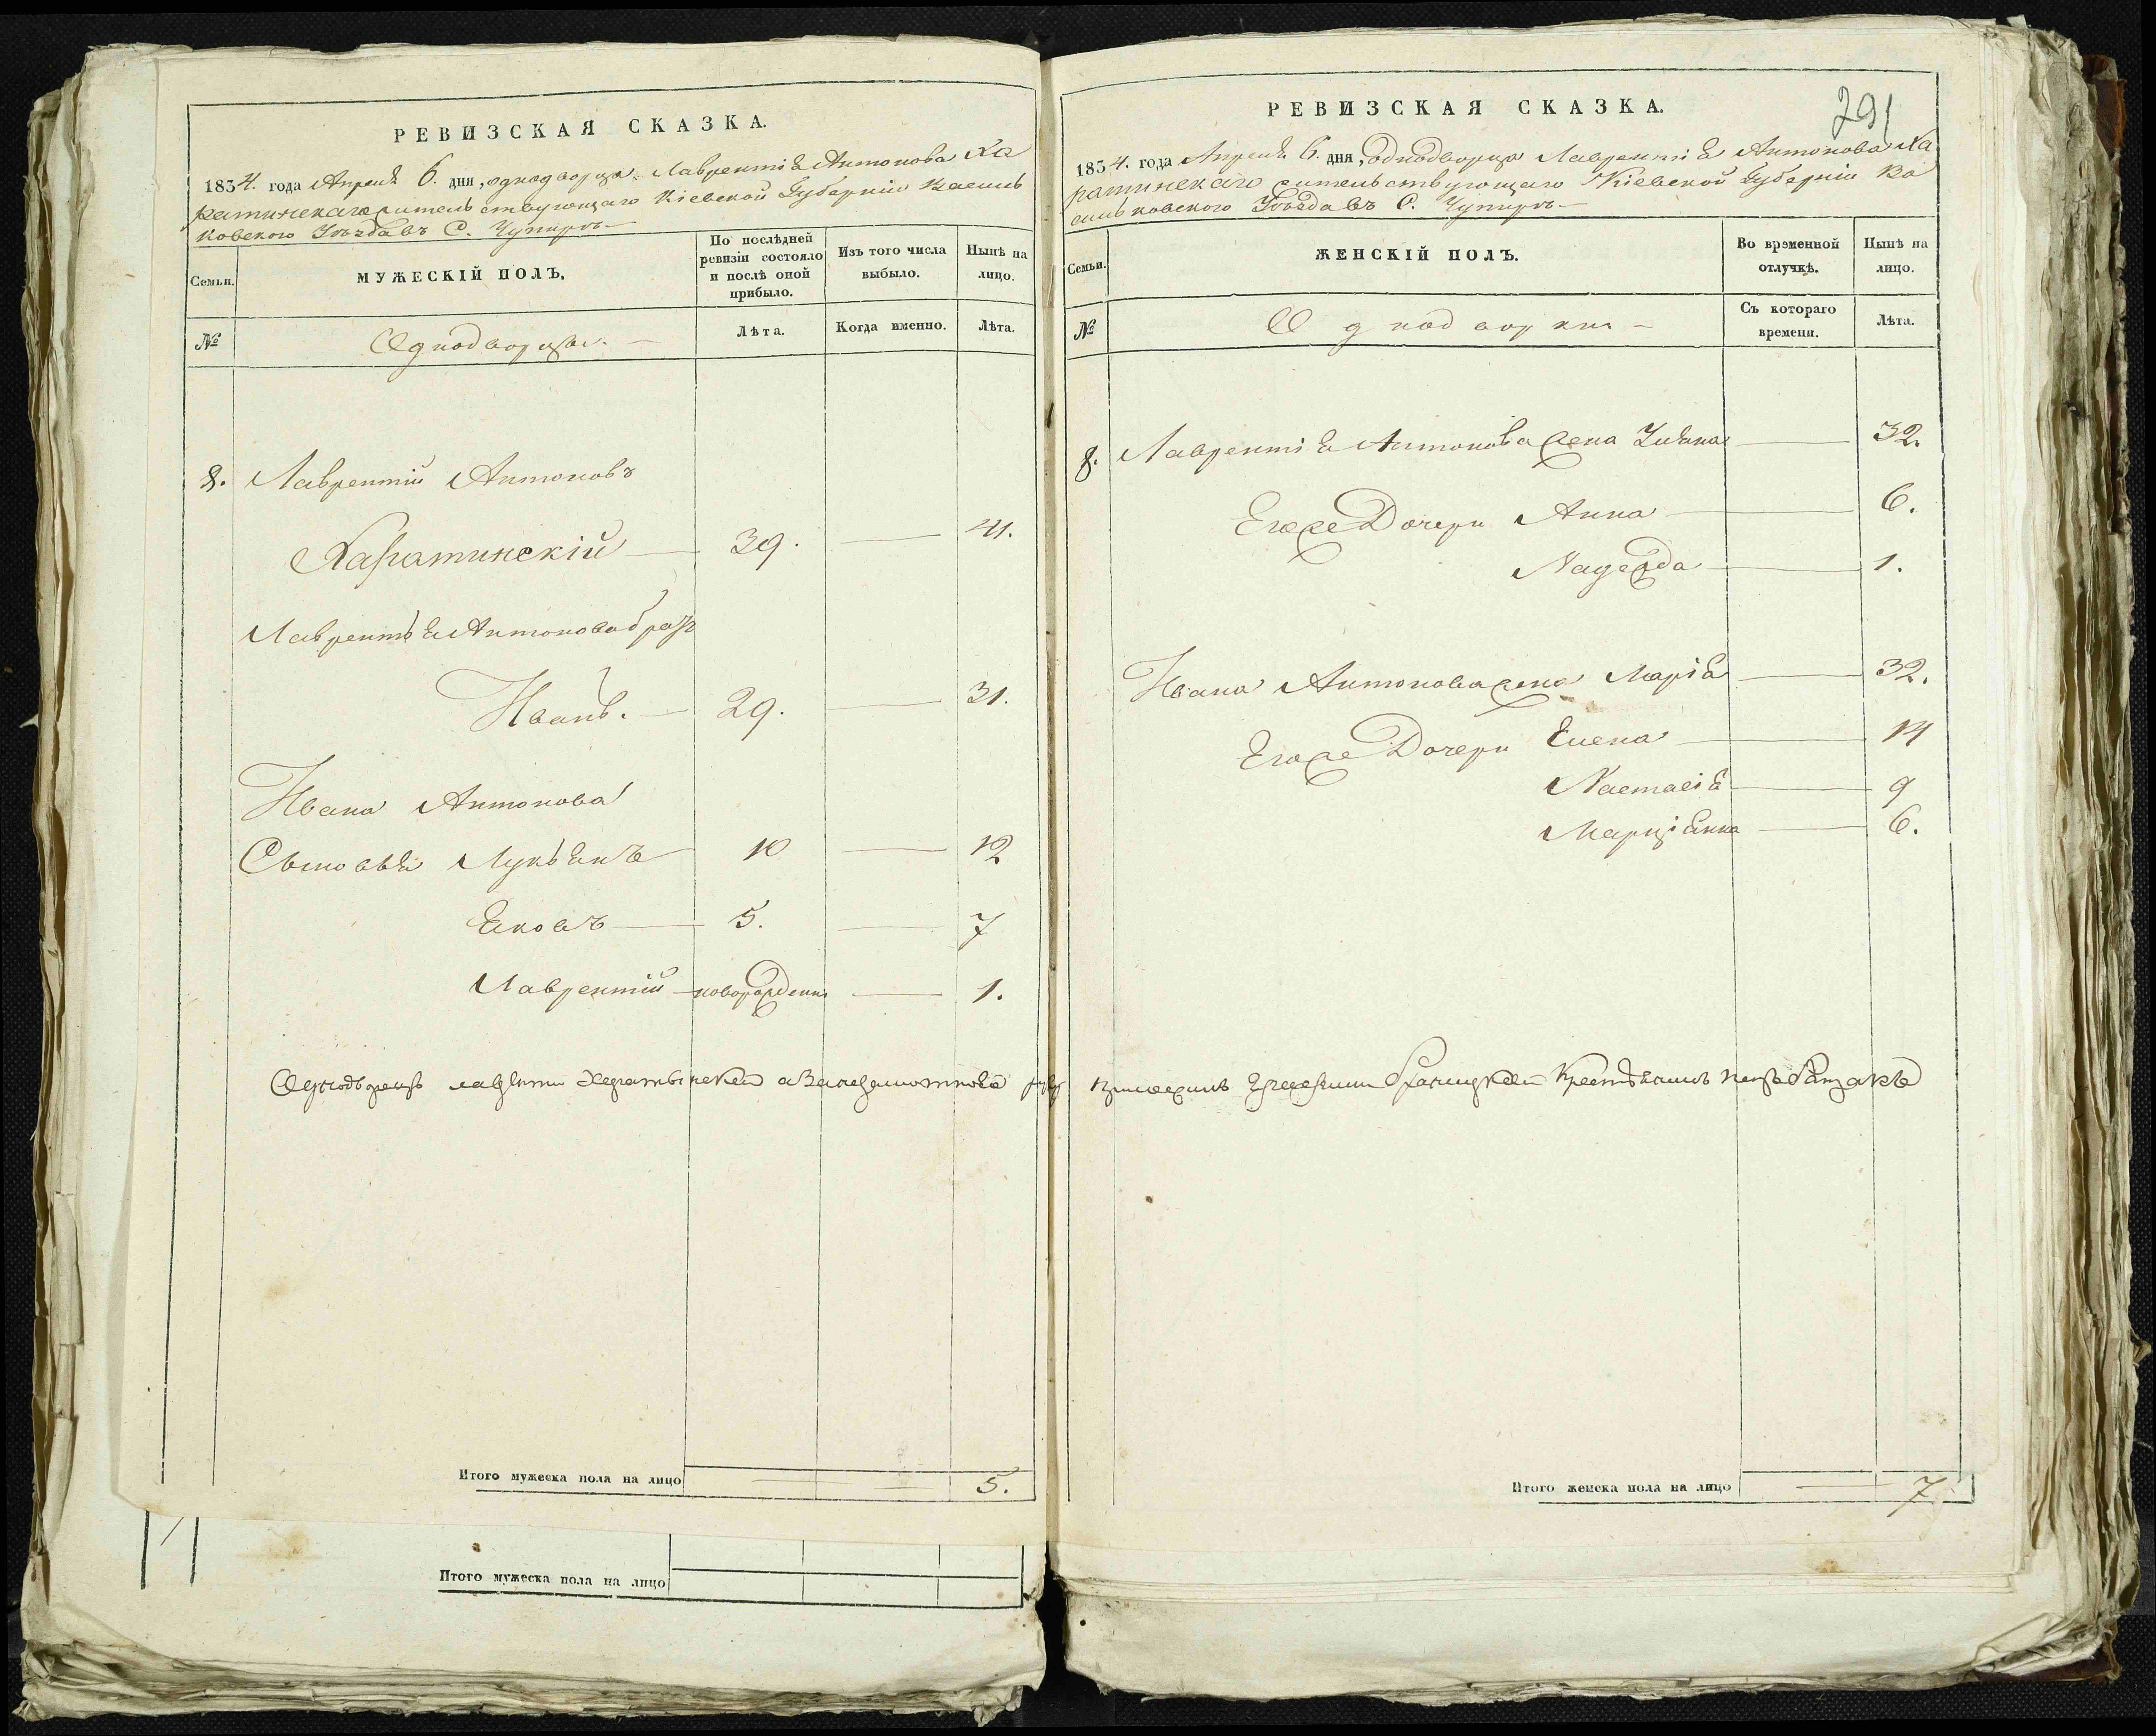 РЕВИЗСКАЯ СКАЗКА.
1834. года Апреля 6. дня, однодворца Лаврентія Антонова Ха
ратинскаго жительствующаго Кіевской Губерніи Василь
ковского Уѣзда въ С. Чупирѣ
Семьи.
МУЖЕСКІЙ ПОЛЪ.
По послѣдней ревизіи состояло и послѣ оной прибыло.
Изъ того числа выбыло.
Нынѣ на лицо.
№
Однодворцы.
Лѣта.
Когда именно.
Лѣта.
8. Лаврентій Антоновъ
Харатинскій 39. 41.
Лаврентія Антонова братъ
Иванъ. 29. 31.
Ивана Антонова
Сыновья Лукьянъ 10 12
Яковъ 5. 7
Лаврентій новорожденн 1.
Однодворецъ
Итого мужеска пола на лицо 5.
Итого мужеска пола на лицо
РЕВИЗСКАЯ СКАЗКА.
291
1834. года Апреля 6. дня, однодворца Лаврентія Антонова Ха
ратинскаго жительствующаго Кіевской Губерніи Ва
сильковского Уѣзда въ С. Чупирѣ
Семьи.
ЖЕНСКІЙ ПОЛЪ.
Во временной отлучкѣ.
Нынѣ на лицо.
№
Однодворки
Съ котораго времени.
Лѣта.
8. Лаврентія Антонова жена 32.
Егоже Дочери Анна 6.
Надежда 1.
Ивана Антонова жена Марія 32.
Егоже Дочери Елена 14
Настасія 9
Марціянна 6.
Итого женска пола на лицо 7